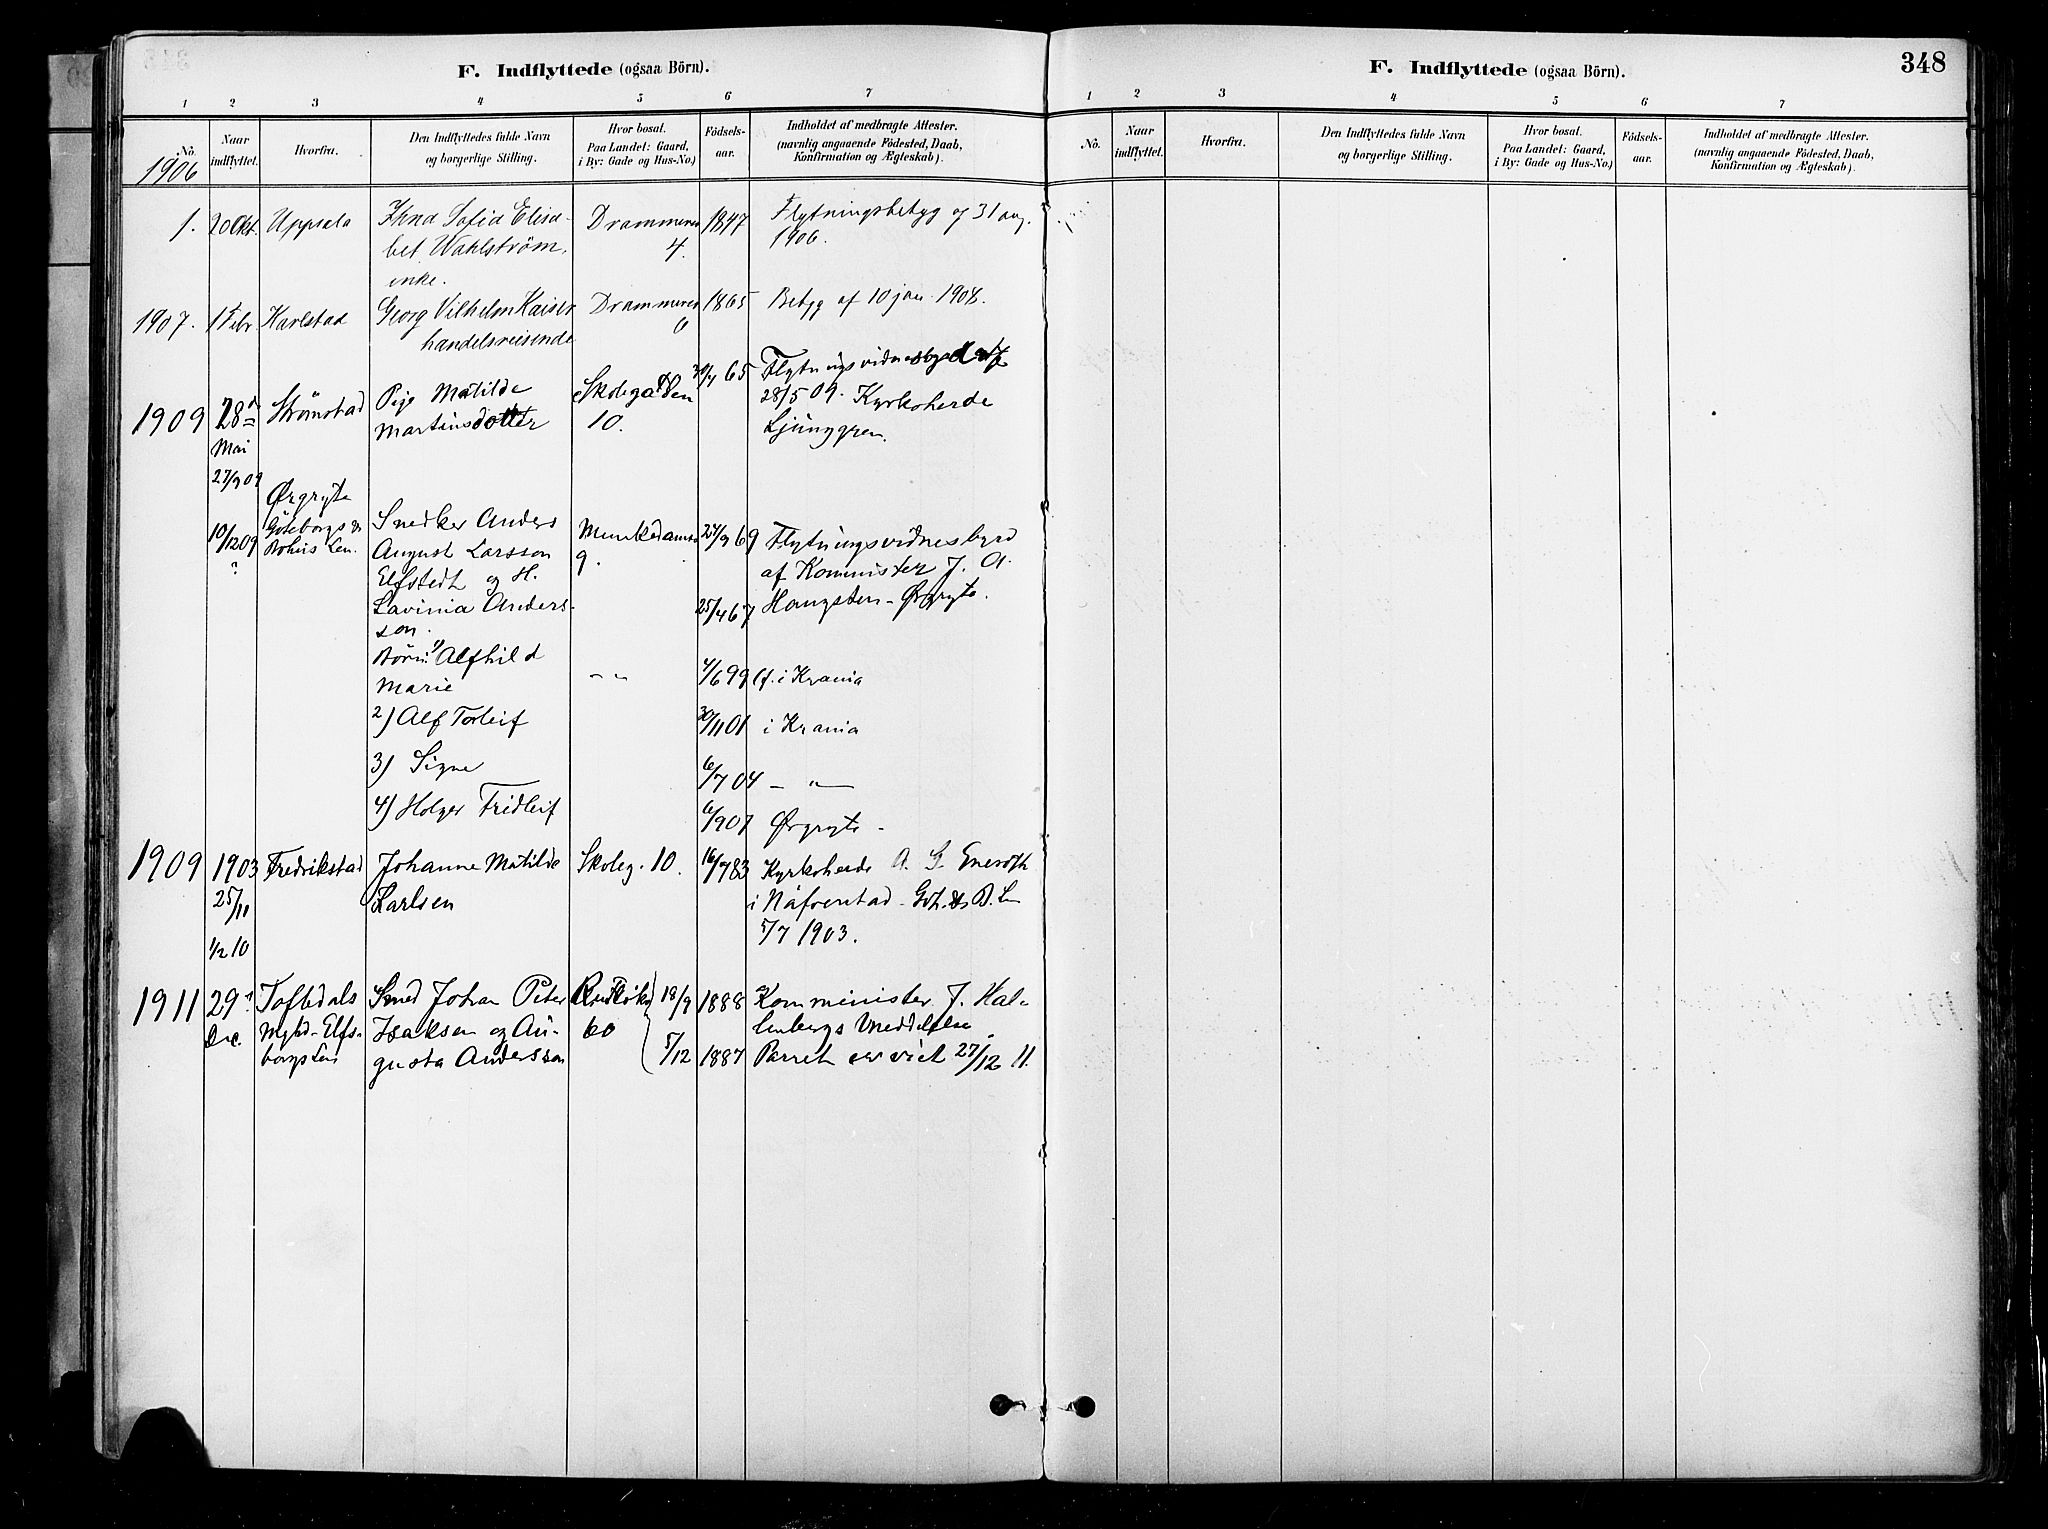 F. Indflyttede (ogsaa Börn).
1 2 3 4 5 6 7
No.
Naar indflyttet.
Hvorfra.
Den Indflyttedes fulde Navn og borgerlige Stilling.
Hvor bosat.
Paa Landet: Gaard,
i By: Gade og Hus-No.)
Födsels-
aar.
Indholdet af medbragte Attester.
(navnlig angaaende Födested, Daab,
Konfirmation og Ægteskab).
1906
1. 20 Okt. Uppsala Sofia Elisa- Drammensv 1847 Flytningsbetyg af 31 aug.
bet Wahlström, 4. 1906.
enke.
1907. 1 Febr. Karlstad Georg Vilhelm Kaiser Drammensv 1865 Betyg af 10 jan. 1908.
handelsreisende 6
1909 28de Strömstad Pige Matilde Skolegaden 30/4 65 Flytningsvidnesbyrd af
Mai Martinsdotter 10. 28/5 09. Kyrkoherde
Ljunggren.
27/9 09
Ørgryte
10/12 09 Göteborgs og Snedker Anders Munkedamsv 27/9 69 Flytningsvidnesbyrd
? Bohus Len. August Larsson 9. af Kommister J. A.
Elfstedt og H.
Lavinia Anders- 25/4 67 Hangsten - Ørgryte.
son.
Børn: 1) Alfhild
Marie - " 4/6 99 (f. i Krania
2) Alf Torleif 30/11 01 i Krania
3) Signe 6/7 04 - " -
4) Holger Fridleif 6/9 07 Ørgryte -
1909 1903 Fredrikstad Johanne Matilde Skoleg. 10. 16/9 83 Kyrkoherde A. G. Eneroth
25/11 Karlsen i Näfverstad - Gth. & B. Len
1/2 10 5/7 1903.
1911 29de Toftedals Smed Johan Peter 18/9 1888 Komminister J. Hal-
Dec. Elfs- Isaksen og Au- 60 lenbergs Meddelelse.
borgs Len gusta Andersson 5/12 1887 Parret er viet 27/12 11.
F. Indflyttede (ogsaa Börn).
348
1 2 3 4 5 6 7
No.
Naar
indflyttet.
Hvorfra.
Den Indflyttedes fulde Navn
og borgerlige Stilling.
Hvor bosat.
Paa Landet: Gaard,
i By: Gade og Hus-No.)
Födsels-
aar.
Indholdet af medbragte Attester.
(navnlig angaaende Födested, Daab,
Konfirmation og Ægteskab).